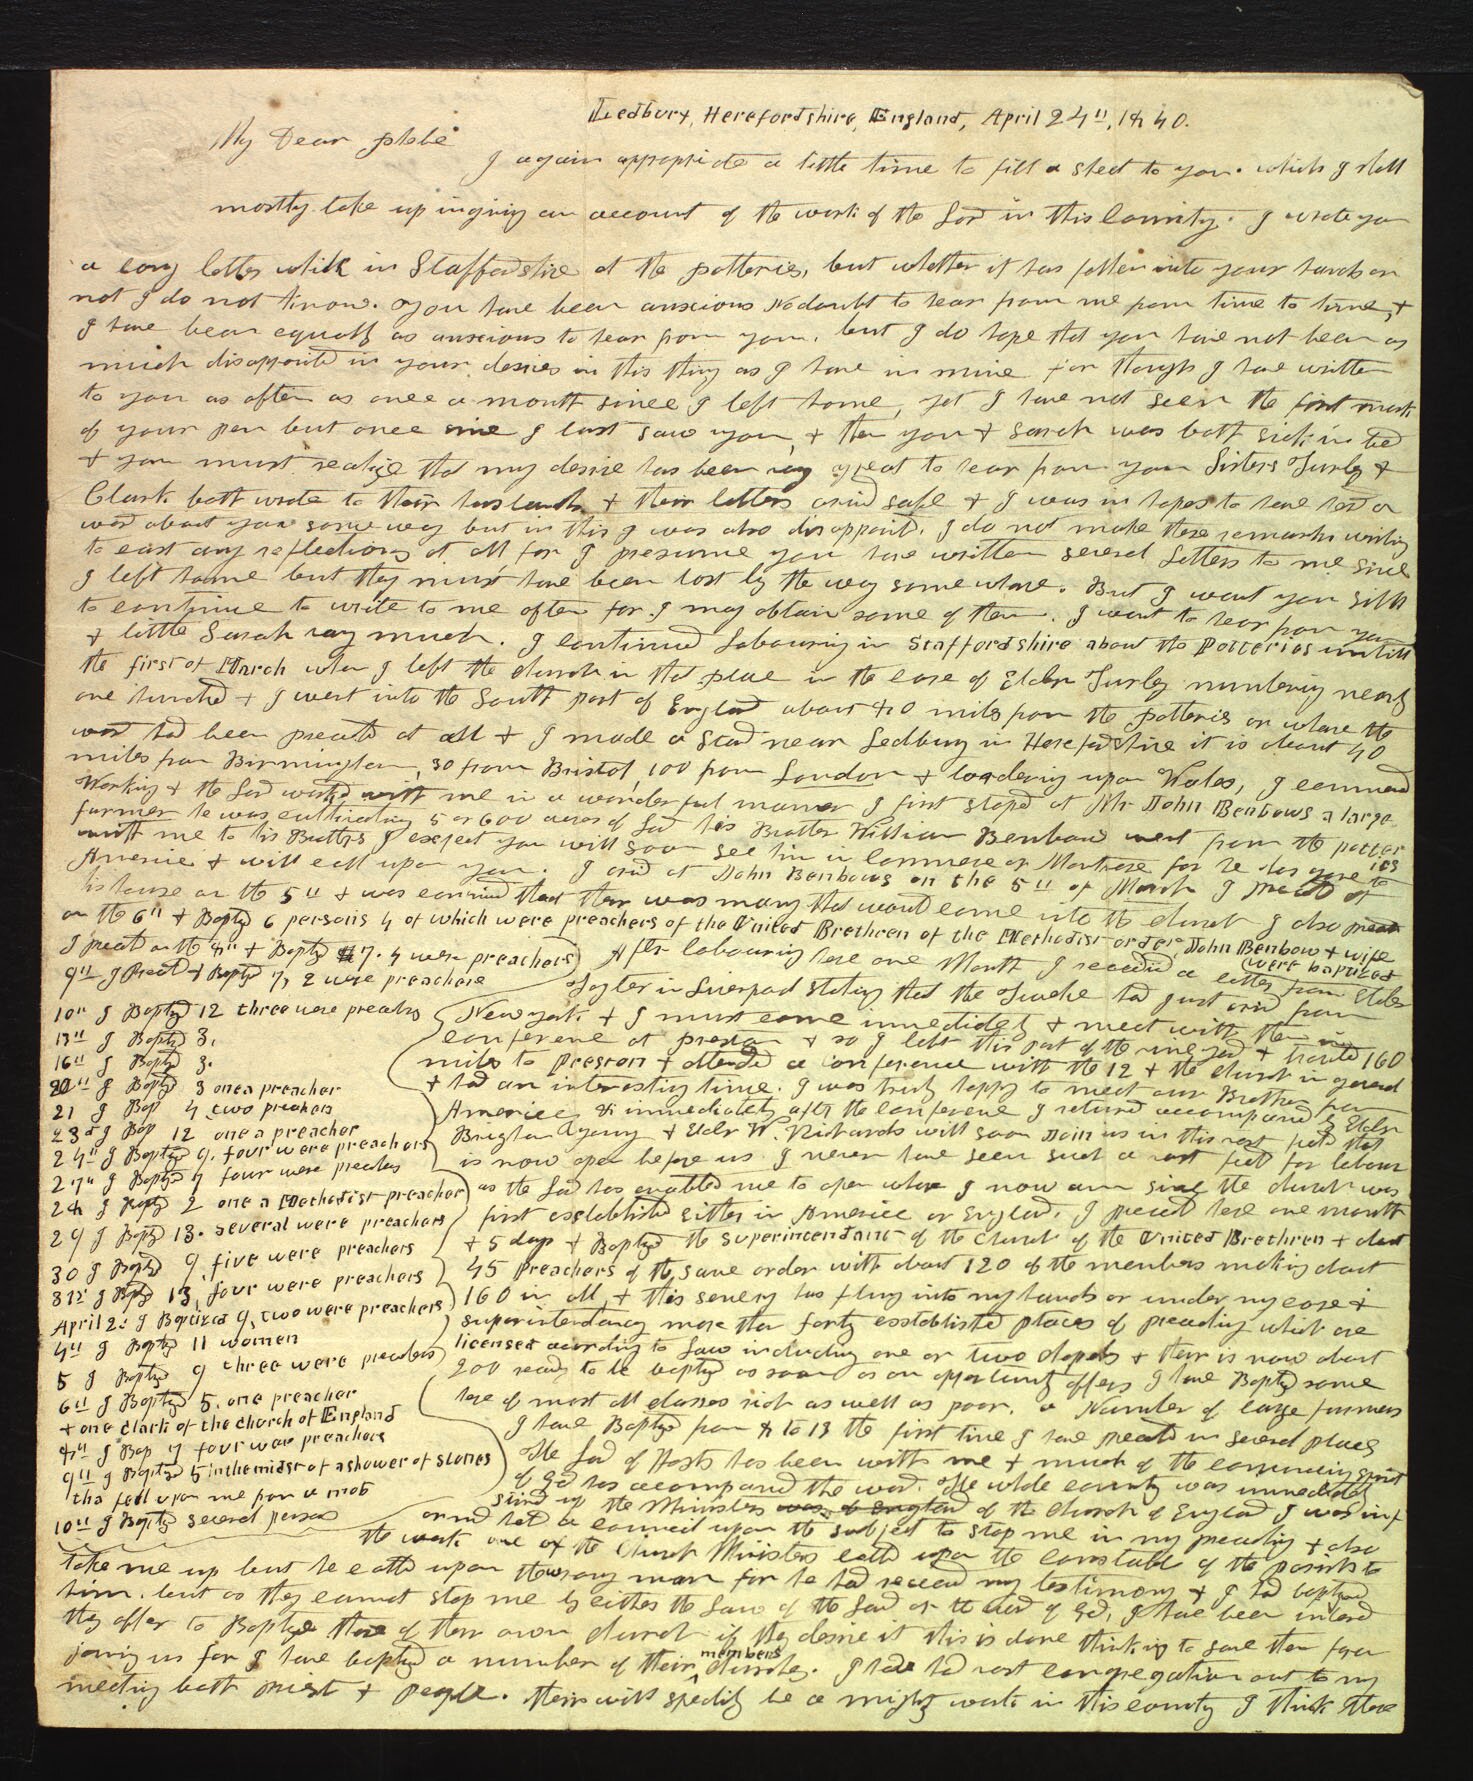 Ledbury, Herefordshire, England, April 24", 1840.
My Dear Phebe
I again appropriate a little time to fill a sheet to you. which I shall
mostly take up in giving an account of the work of the Lord in this County. I wrote you
a long letter while in Staffordshire at the potteries, but whether it has fallen into your hands or
not I do not know. You have been anxious No doubt to hear from me from time to time, &
I have been equally as anxious to hear from you, but I do hope that you have not been as
much disappointed in your desires in this thing as I have in mine for though I have written
to you as often as once a month since I left home, yet I have not seen the first mark
of your pen but once since I last saw you, & then you & Sarah was both sick in bed
& you must realize that my desire has been vary great to hear from you Sisters Turley &
Clark both wrote to their husbands & their letters arived safe & I was in hopes to have herd a
word about you some way but in this I was also disappointed. I do not make these remarks wishing
to cast any reflections at all for I presume you have written several letters to me since
I left home but they must have been lost by the way some whare. But I want you still
to continue to write to me often for I may obtain some of them. I want to hear from you
& little Sarah vary much. I continued Labouring in Staffordshire about the Potteries untill
the first of March when I left the church in that place in the care of Elder Turley numbering nearly
one hundred & I went into the South part of England about 80 miles from the potteries or whare the
word had been preached at all & I made a Stand near Ledbury in Herefordshire it is about 40
miles from Birmingham, 30 from Bristol, 100 from London & bordering upon Wales, I commenced
Working & the Lord worked with me in a wonderful manner I first stoped at Mr John Benbows a large
farmer he was cultivating 5 or 600 acres of land his Brother William Benbow went from the potteries
with me to his Brothers I expect you will soon see him in Commerce or Montrose for he has gone to
America & will call upon you. I arived at John Benbows on the 5" of March I preached at
his house on the 5" & was convinced that their was many that would come into the church I also preached
on the 6" & Baptized 6 persons 4 of which were preachers of the United Brethren of the Methodist order, John Benbow & wife
were baptized
I preached on the 8" & Baptized 7. 4 were preachers
9" I preached & Baptized 7, 2 were preachers
10" I Baptized 12 three were preachers
13" I Baptized 3.
16" I Baptized 3.
20" I Baptized 3 one a preacher
21 I Bap 4 two preachers
23d I Bap 12 one a preacher
24" I Baptized 9, four were preachers
27" I Baptized 7 four were preachers
28 I Baptized 2 one a Methodist preacher
29 I Baptized 13. several were preachers
30 I Baptized 9, five were preachers
31st I Baptized 13, four were preachers
April 2d I Baptized 9, two were preachers
4" I Baptized 11 women
5 I Baptized 9 three were preachers
6" I Baptized 5. one preacher
& one Clark of the Church of England
8" I Bap 7 four were preachers
9" I Baptized 5 in the midst of a shower of stones
tha fell upon me from a mob
10" I Baptized several persons
After labouring here one Month I received a letter from Elder
Taylor in Liverpool stating that the Twelve had just arived from
New york & I must come immediately & meet with them in
conference at preston & so I left this part of the vineyard & travled 160
miles to Preston & attended a conference with the 12 & the church in general
& had an interesting time. I was truly happy to meet our Brethren from
America & immediately after the conference I returned accompanied by Elder
Brigham Young & Elder W. Richards will soon Join us in this vast field that
is now open before us I never have seen such a vast field for labour
as the Lord has enabled me to open whare I now am since the church was
first established either in America or England, I preached here one month
& 5 days & Baptized the superintendant of the Church of the United Brethren & about
45 Preachers of the same order with about 120 of the members making about
160 in all, & this scenery has flung into my hands or under my care &
superintendancy more than forty established places of preaching which are
licensed according to Law including one or two chapels & their is now about
200 ready to be baptized as soon as an opportunity offers I have Baptized some
here of most all classes rich as well as poor. a Number of large farmers
I have Baptized from 8 to 13 the first time I have preached in several places
The Lord of Hosts has been with me & much of the convincing spirit
of God has accompanied the word. The whole county was immediately
stired up the Ministers was of England of the Church of England I was inf
ormed had a council upon the subject to stop me in my preaching & also
the work one of the Church Ministers called upon the constable of the parish to
take me up but he called upon the wrong man for he had received my testimony & I had baptized
him. but as they cannot stop me by either the Law of the Land or the word of God, I have been informed
they offer to Baptize those of their own church if they desire it this is done thinking to save them from
joining us for I have baptized a number of their members churches. I have had vast congregation out to my
meeting both priest & people. their will speedily be a mighty work in this county I think there